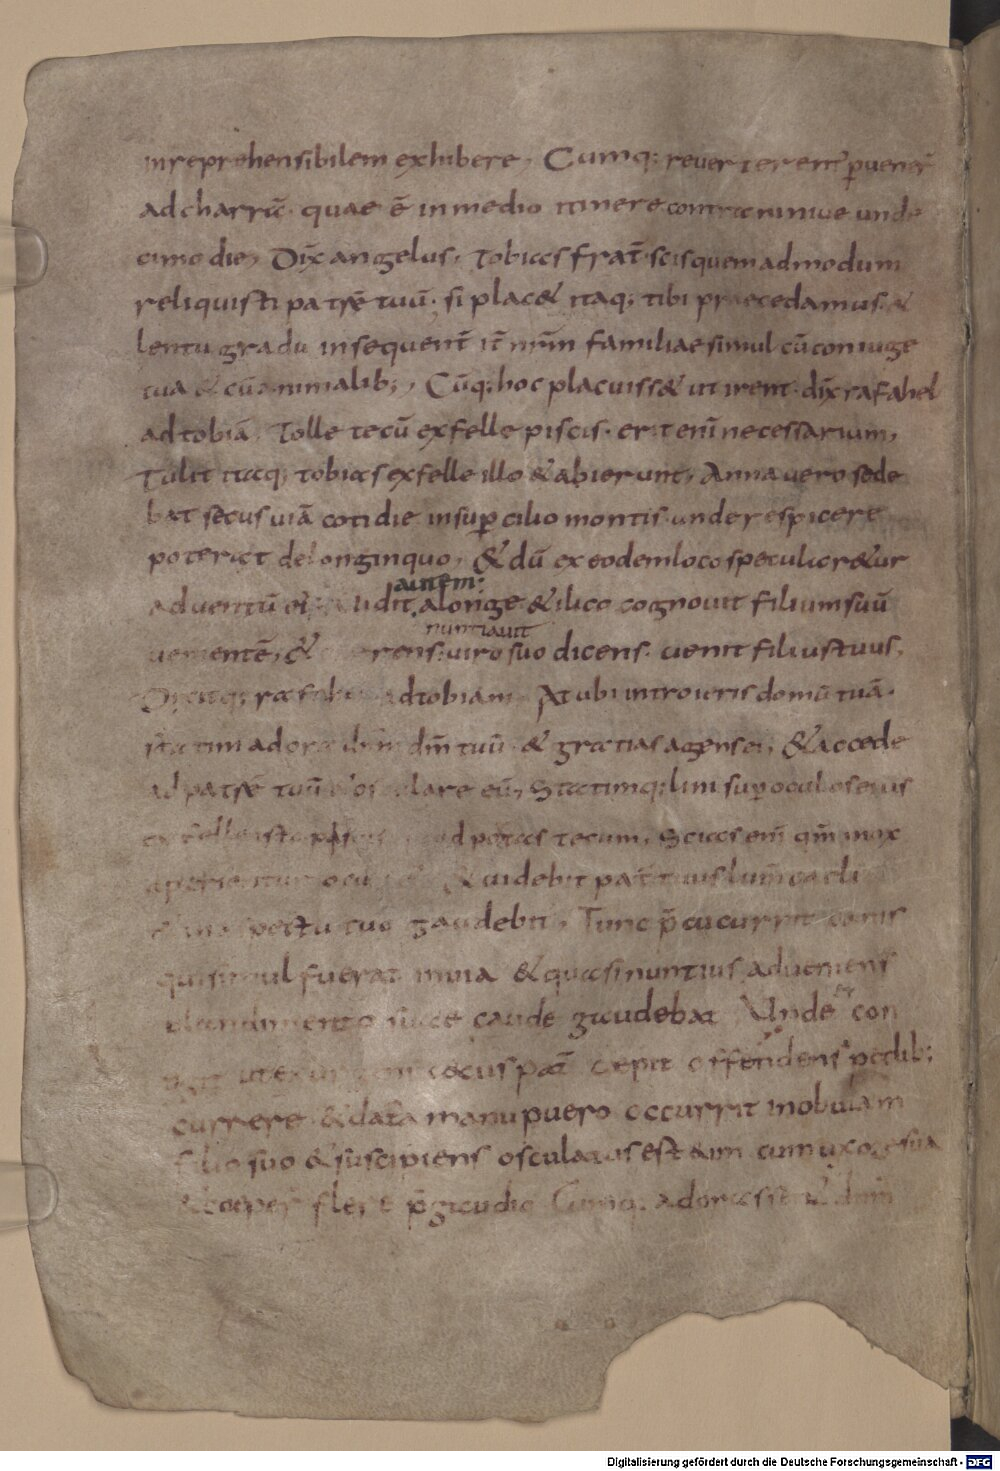 inreprehensibilem exhibere, Cumq; reverterent̄ p̱vener̄
ad charrā· quae ē in medio itinere contra ninive unde
cimo die, Dix̄ angelus, Tobias frat̄ scis quemadmodum
reliquisti patrē tuū· si plac& itaq; tibi praecedamus· &
lentu gradu insequent̄ it̄ nr̄m familiae simul cū coniuge
tua & cū animalib;, Cūq; hoc placuiss& ut irent· dix̄ rafahel
ad tobiā, Tolle tecū ex felle piscis· erit enī necessarium,
Tulit itaq; tobias ex felle illo & abierunt, Anna vero sede
bat secus viā cotidie in sup̱cilio montis unde respicere
poterat de longinquo, & dū ex eodem loco specular&ur
autem:
adventū ei vidit, a longe & ilico cognovit filium suū
nuntiavit
venientē, & rens: viro suo dicens· venit filius tuus,
Dixitq; rafahel ad tobiam At ubi introieris domū tuā·
statim adora ibi dm̄ tuū· & gratias agens ei, & accede
ad patrē tuū & osculare eū, Statimq; lini sup̱ oculos eius
ex felle isto piscis portas tecum, Scias enī qm̄ mox
aperientur oculi & videbit pat̄ tuus lum̄ caeli
& in aspectu tuo gaudebit, Tunc p̄cucurrit canis
qui simul fuerat in via & quasi nuntius adveniens
blandimento suae caude gaudebat Unde con
ut exurgens caecus pat̄ cepit offendens pedib;
currere & data manu puero occurrit in obviam
filio suo & suscipiens osculatus est eum cum uxore sua
& coeper̄ flere p̄ gaudio Cumq; adorassent dm̄